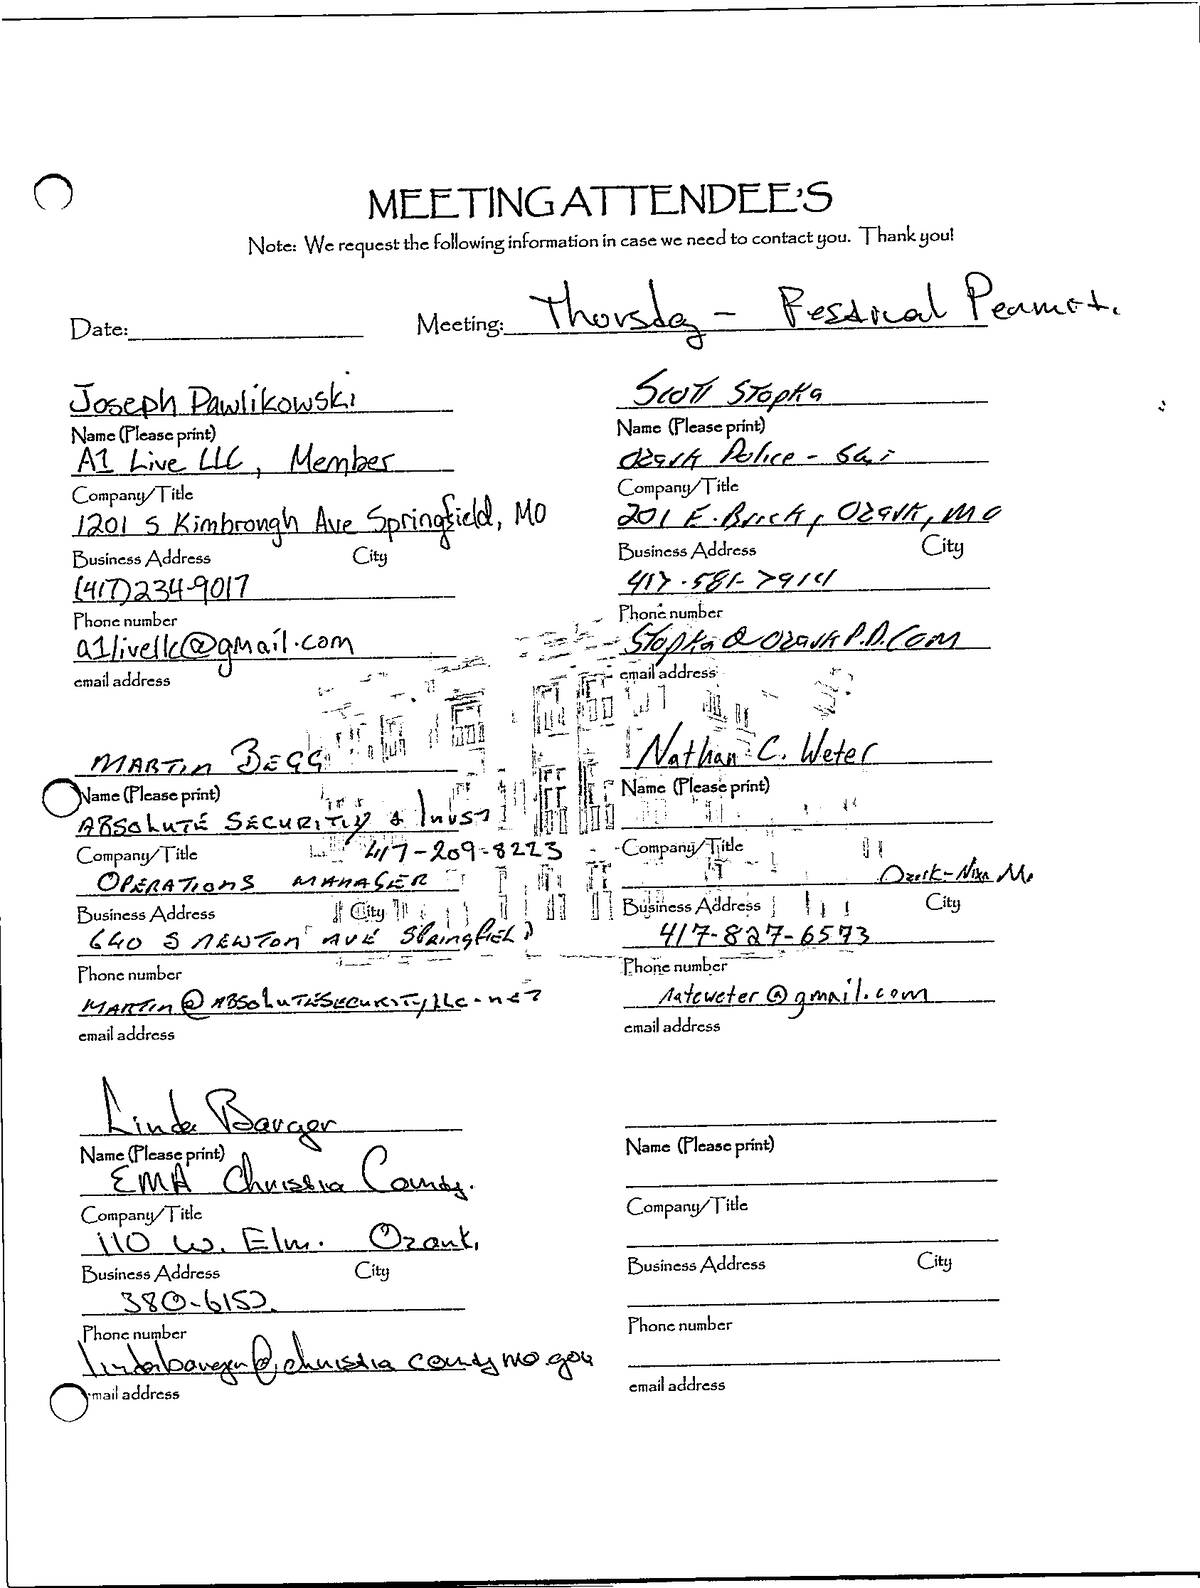 MEETING ATTENDEE'S
Note: We request the following information in case we need to contact you. Thank you!
Date: Meeting: Thursday - Festival Permit.
Joseph Pawlikowski
Name (Please print)
A1 Live LLC, Member
Company/Title
1201 S Kimbrough Ave Springfield, MO
Business Address City
(417)234-9017
Phone number
a1livellc@gmail.com
email address
Scott Stopka
Name (Please print)
Ozark Police -
Company/Title
201 E. Brick, Ozark, MO
Business Address City
417-581-7914
Phone number
Stopka@OzarkP.D.Com
email address
MARTIN BEGG
Name (Please print)
ABSOLUTE SECURITY & Invst
Company/Title 417-209-8223
OPERATIONS MANAGER
Business Address City
640 S NEWTON AVE Springfield
Phone number
MARTIN@ABSOLUTESECURITYLLC.net
email address
Nathan C. Weter
Name (Please print)
Company/Title
Ozark-Nixa Mo
Business Address City
417-827-6573
Phone number
nateweter@gmail.com
email address
Linda Barger
Name (Please print)
EMA Christian County.
Company/Title
110 W. Elm. Ozark,
Business Address City
380-6152
Phone number
lindabarger@christiancountymo.gov
email address
Name (Please print)
Company/Title
Business Address City
Phone number
email address